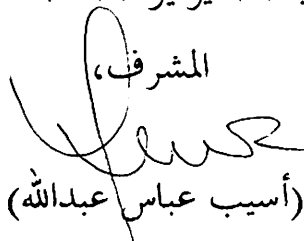 المشرف،
(أسيب عباس عبدالله)